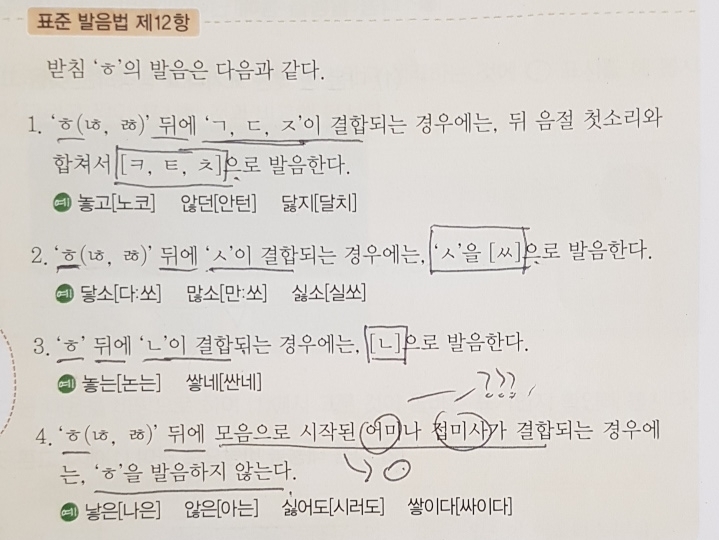 표준 발음법 제12항
받침 ‘ㅎ’의 발음은 다음과 같다.
1. ‘ㅎ(ㄶ, ㅀ)’ 뒤에 ‘ㄱ, ㄷ, ㅈ’이 결합되는 경우에는, 뒤 음절 첫소리와
합쳐서 [ㅋ, ㅌ, ㅊ]으로 발음한다.
예 놓고[노코] 않던[안턴] 닳지[달치]
2. ‘ㅎ(ㄶ, ㅀ)’ 뒤에 ‘ㅅ’이 결합되는 경우에는, ‘ㅅ’을 [ㅆ]으로 발음한다.
예 닿소[다:쏘] 많소[만:쏘] 싫소[실쏘]
3. ‘ㅎ’ 뒤에 ‘ㄴ’이 결합되는 경우에는, [ㄴ]으로 발음한다.
예 놓는[논는] 쌓네[싼네]
???
4. ‘ㅎ(ㄶ, ㅀ)’ 뒤에 모음으로 시작된 어미나 접미사가 결합되는 경우에
는, ‘ㅎ’을 발음하지 않는다.
예 낳은[나은] 않은[아는] 싫어도[시러도] 쌓이다[싸이다]